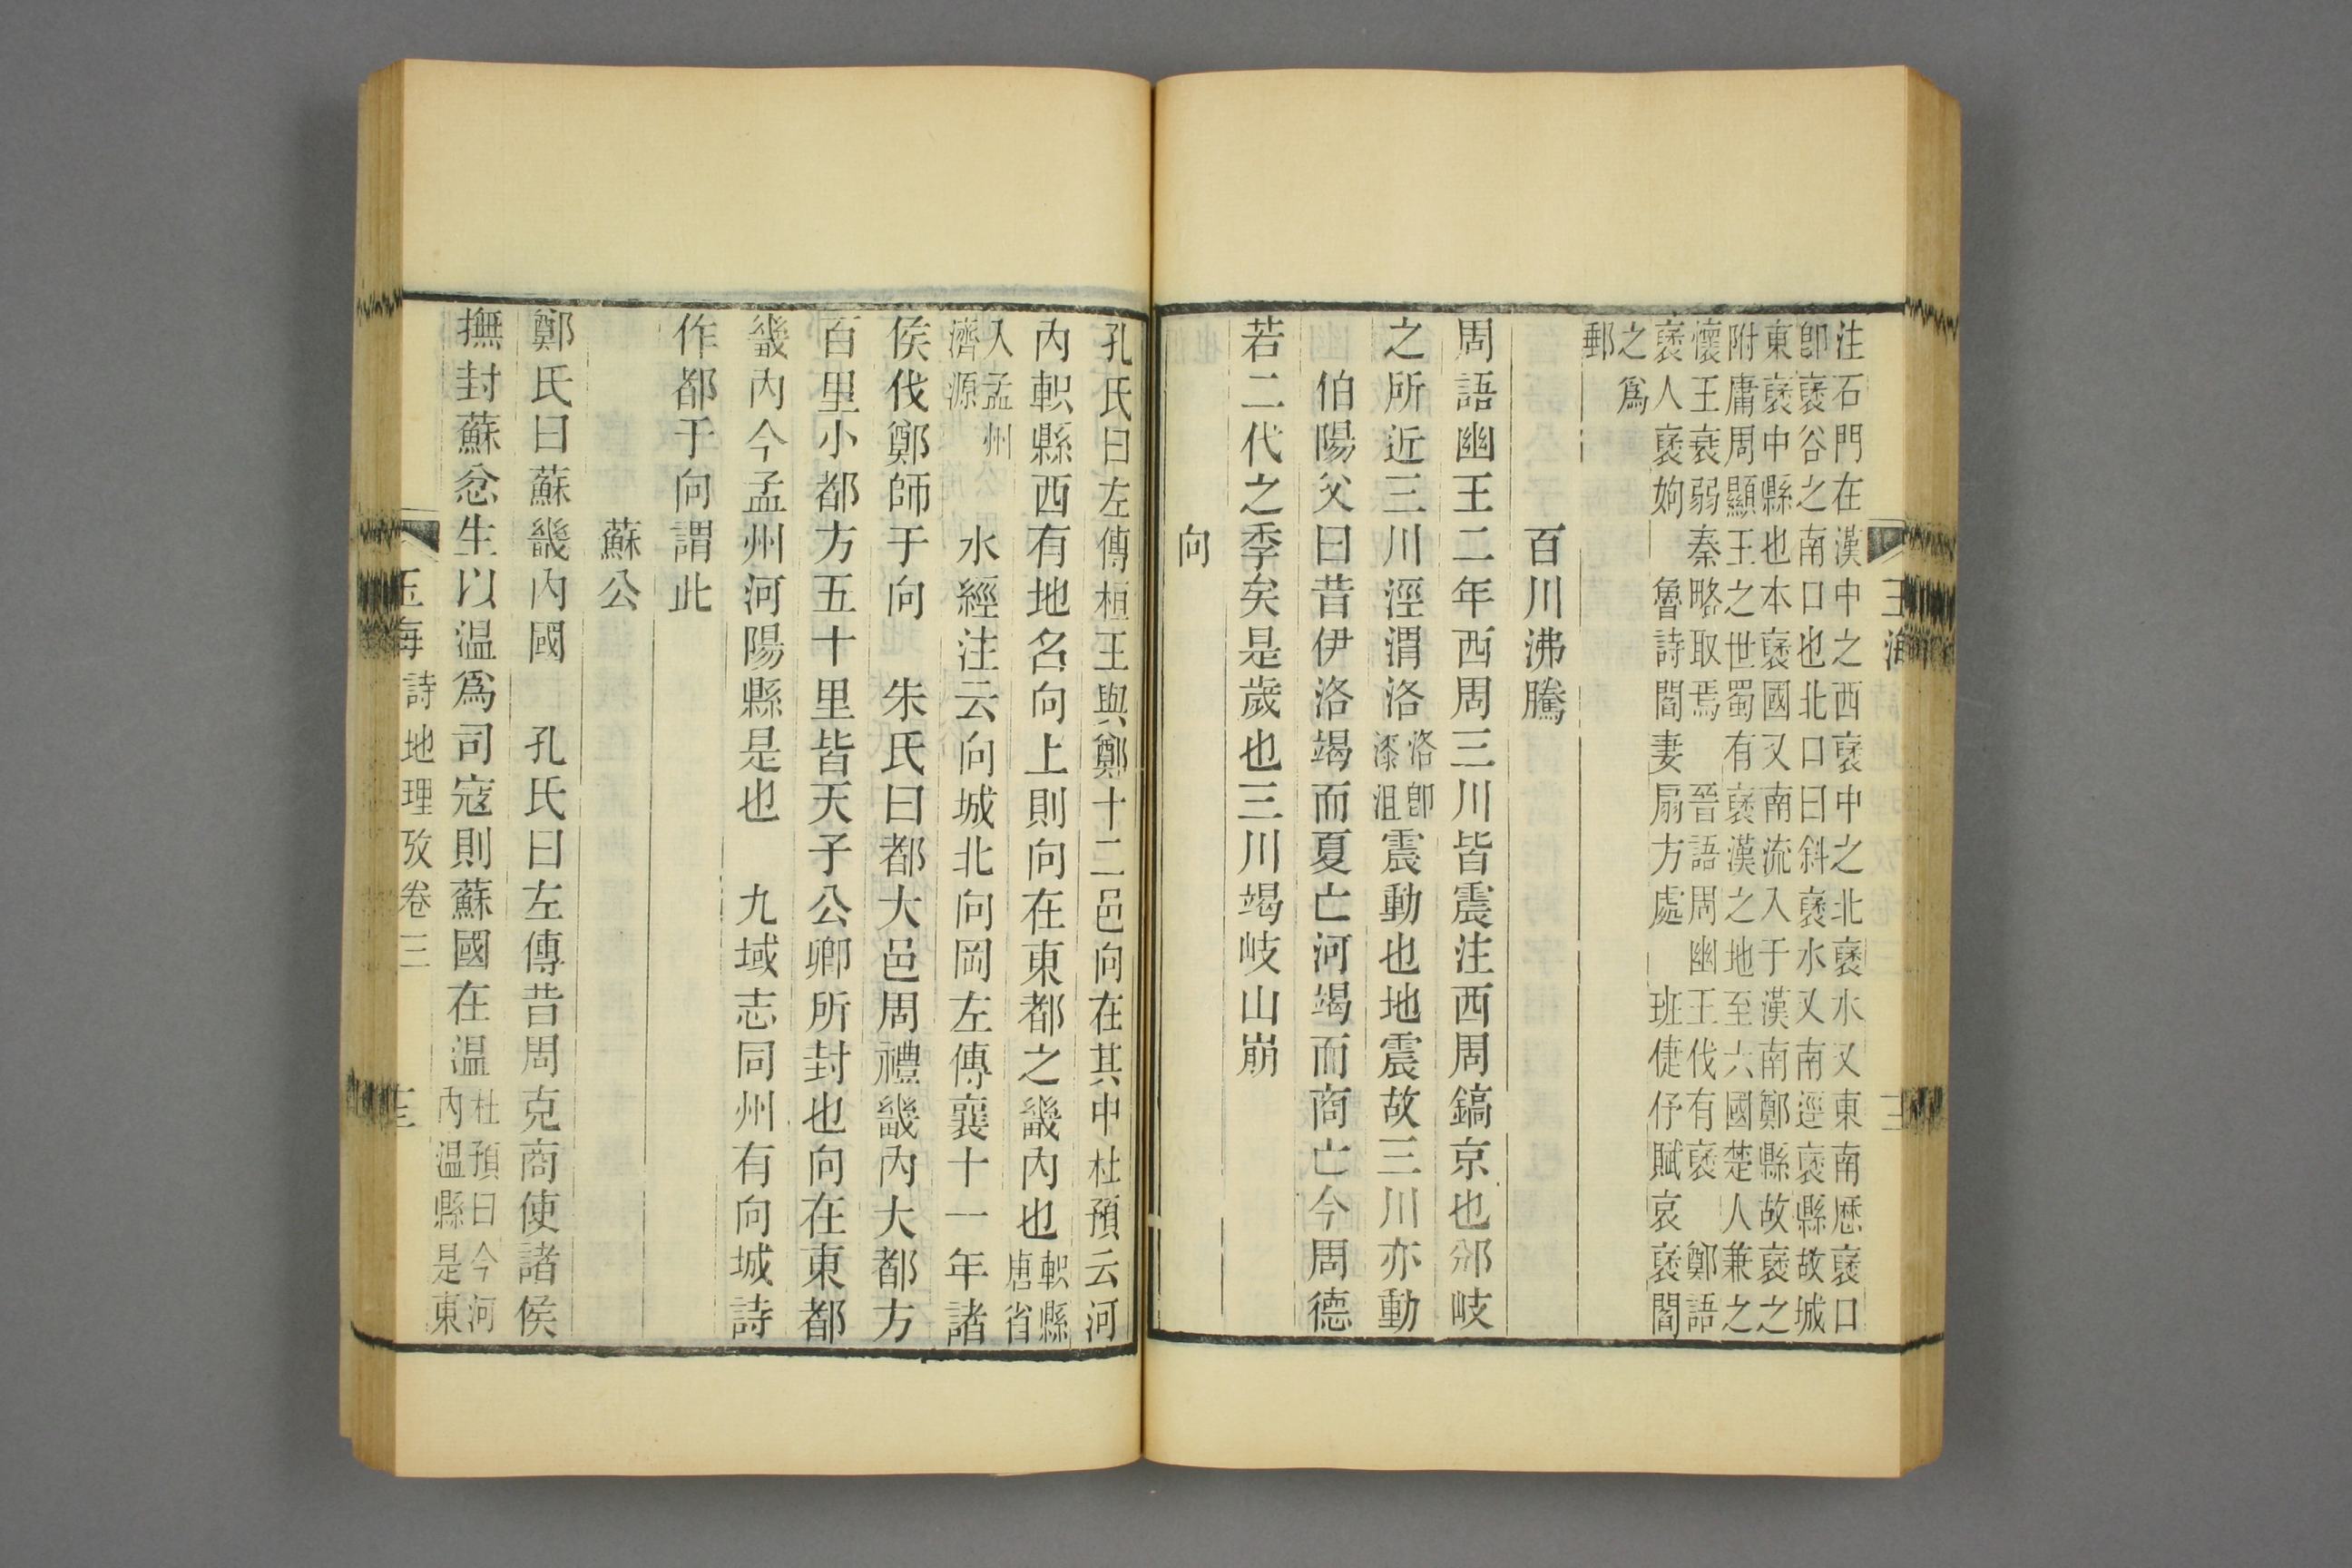 注石門在漢中之西褒中之北褒水又東南厯褒口
卽褒谷之南口也北口曰斜褒水又南逕褒縣故城
東褒中縣也本褒國又南流入于漢南鄭縣故褒之
附庸周顯王之世蜀有褒漢之地至六國楚人兼之
懷王衰弱秦略取焉　晉語周幽王伐有褒　鄭語
褒人褒姁　魯詩閻妻扇方處　班倢伃賦哀褒閻
之爲
郵
百川沸騰
周語幽王二年西周三川皆震注西周鎬京也邠岐
之所近三川涇渭洛洛卽漆沮震動也地震故三川亦動
伯陽父曰昔伊洛竭而夏亡河竭而商亡今周德
若二代之季矣是歲也三川竭岐山崩
向
孔氏曰左傳桓王與鄭十二邑向在其中杜預云河
內軹縣西有地名向上則向在東都之畿內也軹縣唐省
入孟州濟源　水經注云向城北向岡左傳襄十一年諸
侯伐鄭師于向　朱氏曰都大邑周禮畿內大都方
百里小都方五十里皆天子公卿所封也向在東都
畿內今孟州河陽縣是也　九域志同州有向城詩
作都于向謂此
蘇公
鄭氏曰蘇畿內國　孔氏曰左傳昔周克商使諸侯
撫封蘇忿生以温爲司寇則蘇國在温杜預曰今河內温縣是東
玉海　詩地理攷卷三